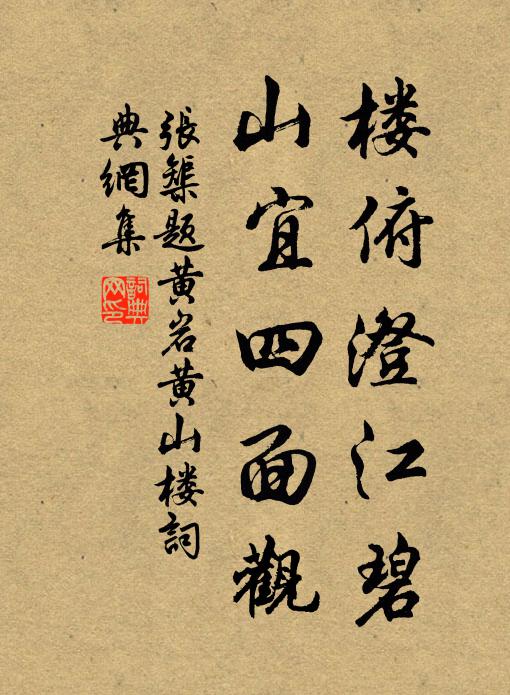 楼俯澄江碧
山宜四面觀
張榘題黄岩黄山楼詞
典網集
詞典網印